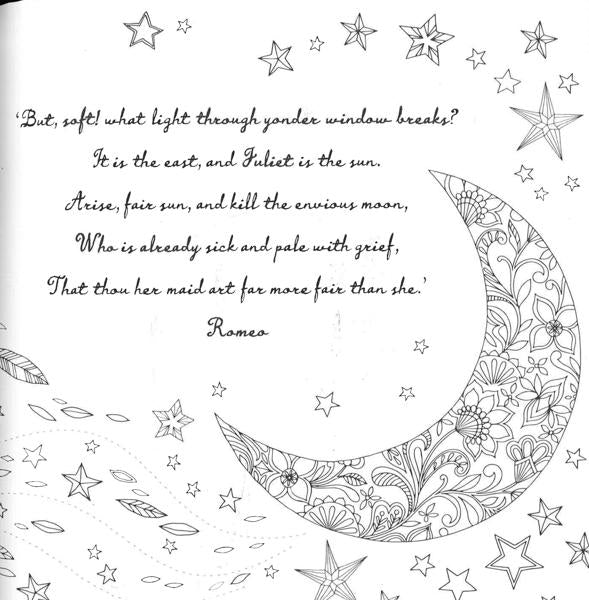 'But, soft! what light through yonder window breaks?
It is the east, and Juliet is the sun.
Arise, fair sun, and kill the envious moon,
Who is already sick and pale with grief,
That thou her maid art far more fair than she.'
Romeo